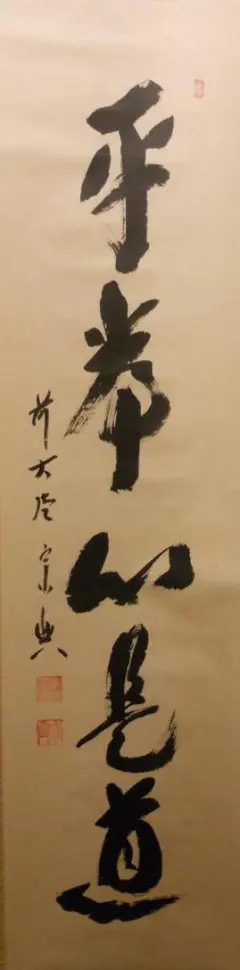 平常心是道
前大徳 宗典